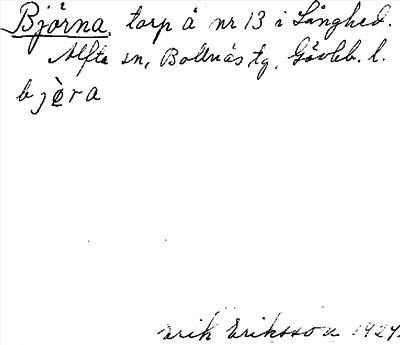 Björna, torp å nr 13 i Långhed.
Alfta sn, Bollnäs tg, Gävleb. l.
bjɵra
Erik Eriksson 1929.